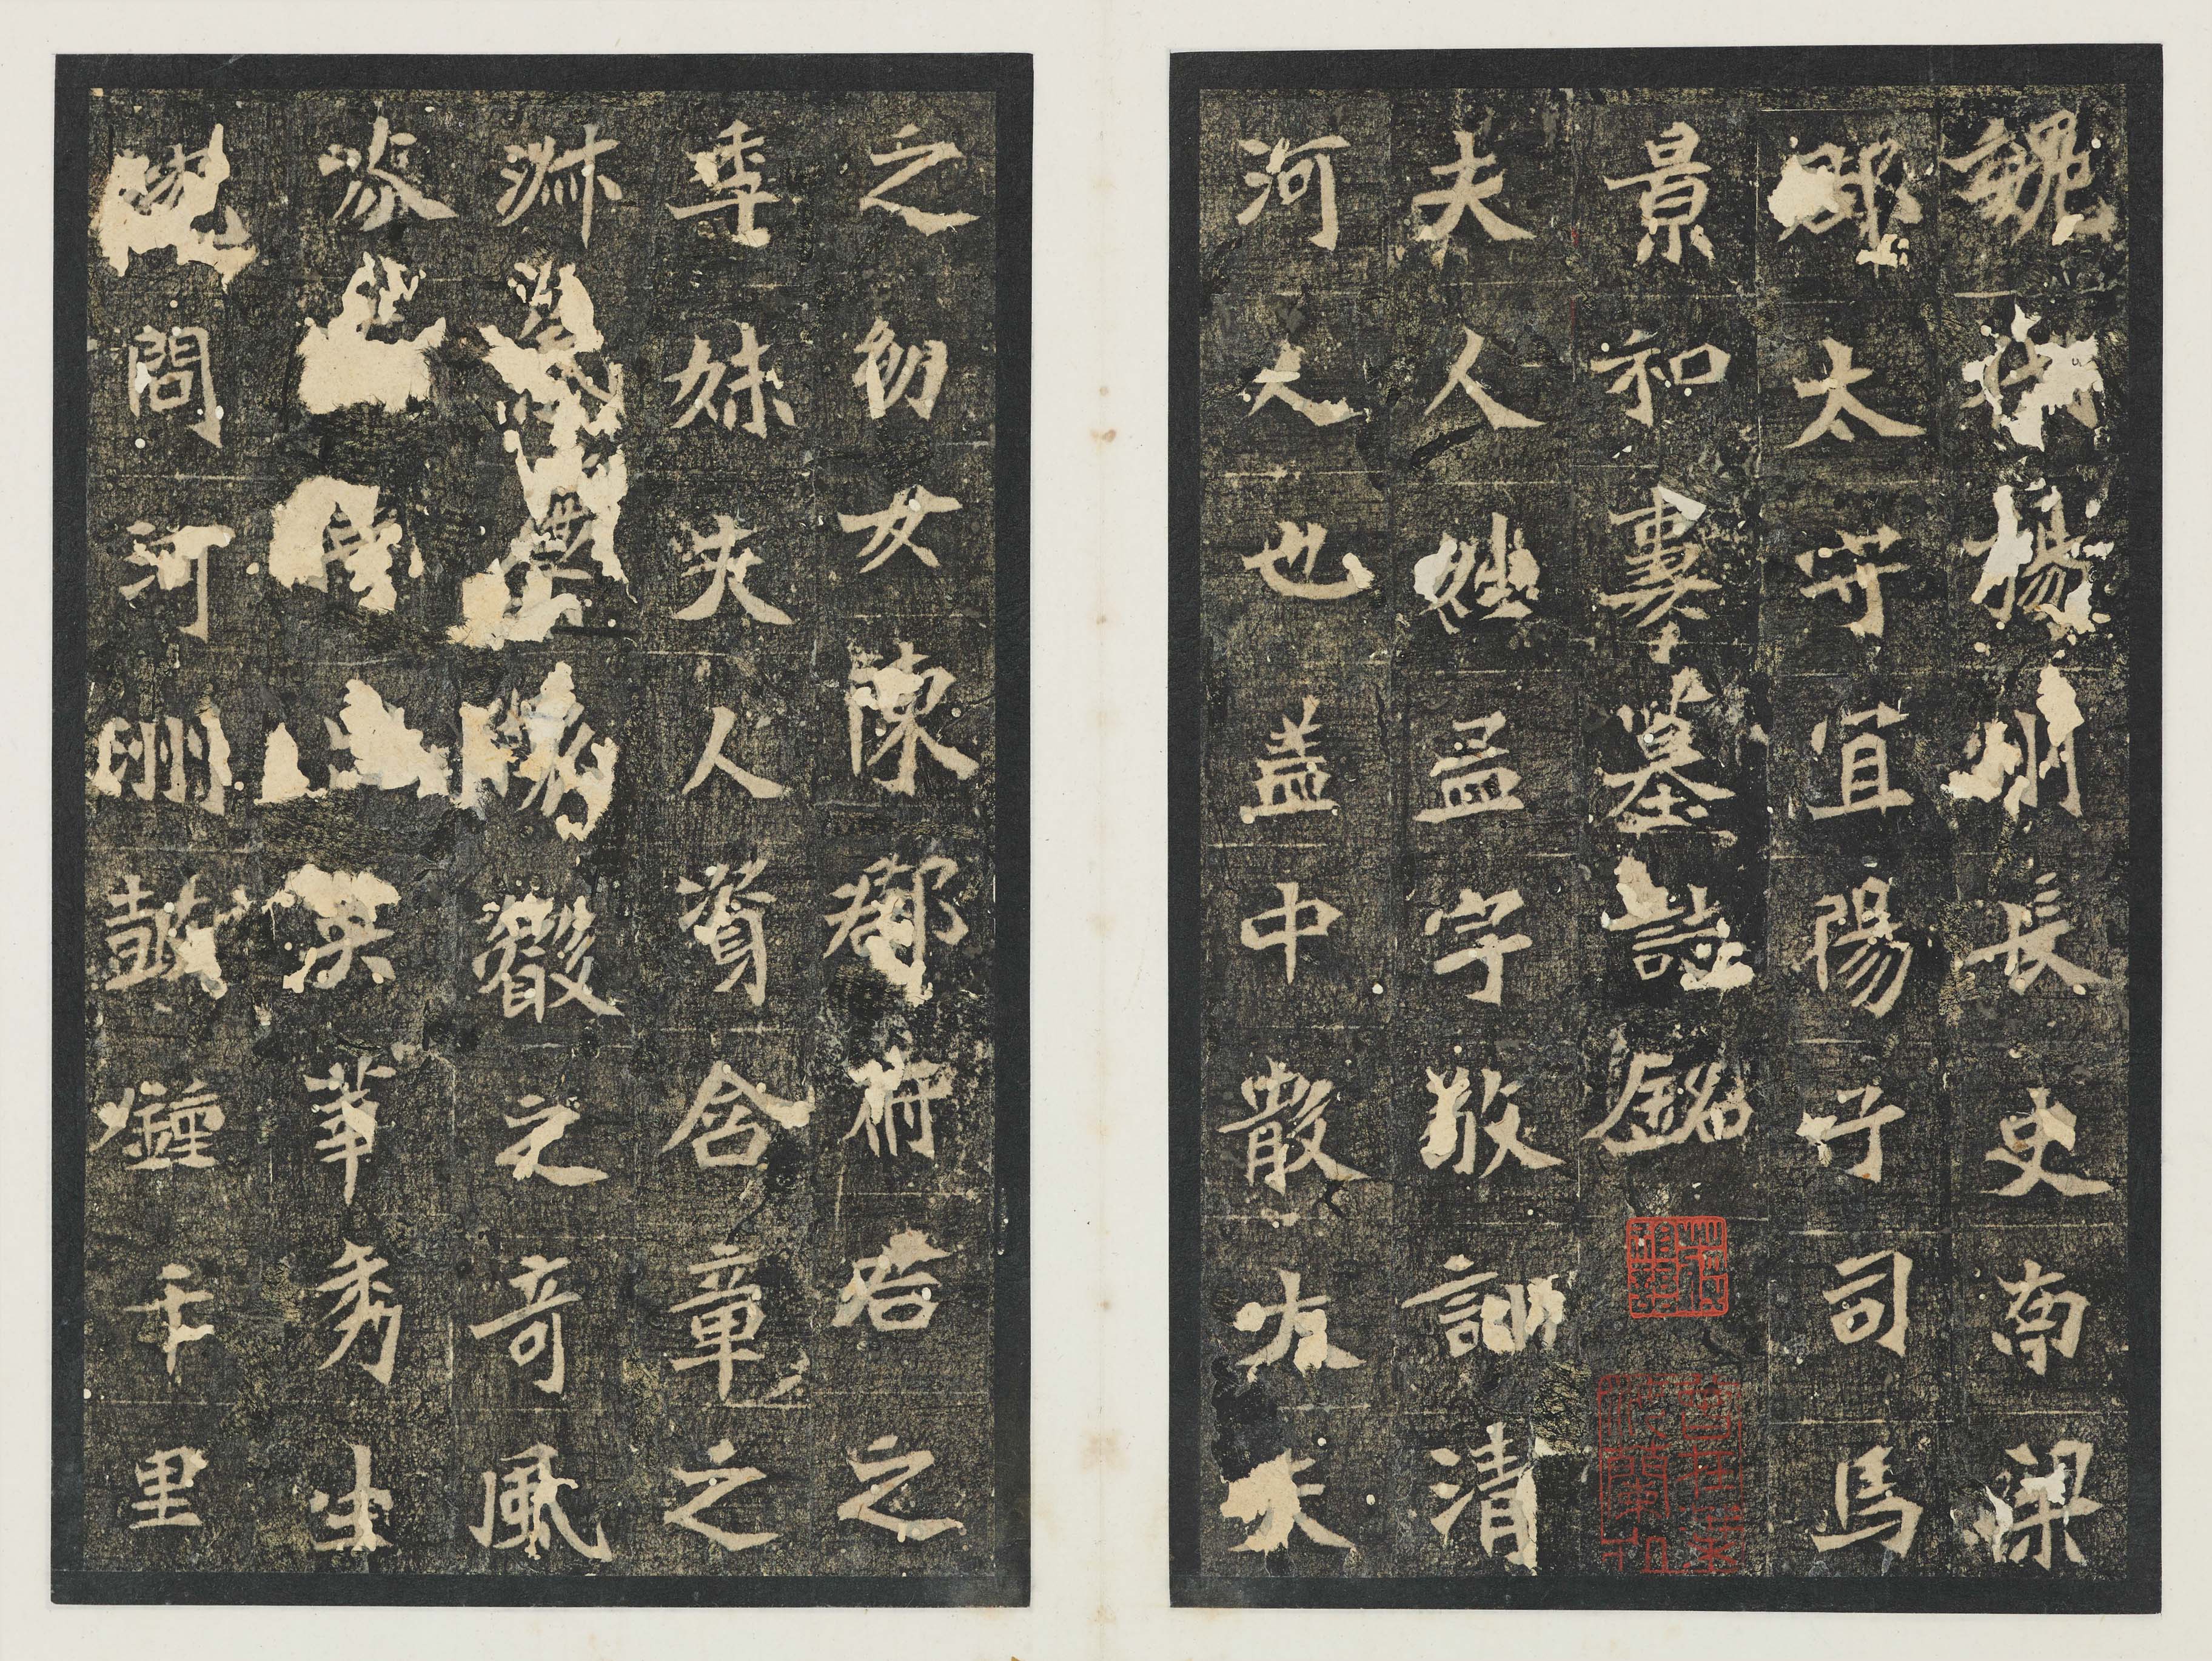 魏代揚州長史南梁
郡太守宜陽子司馬
景和妻墓誌銘
夫人姓孟字敬訓清
河人也盖中散大夫
之幼女陳郡府君之
季妹夫人資含章之
淑叡之奇風
英華秀生
問河洲鼓鐘千里